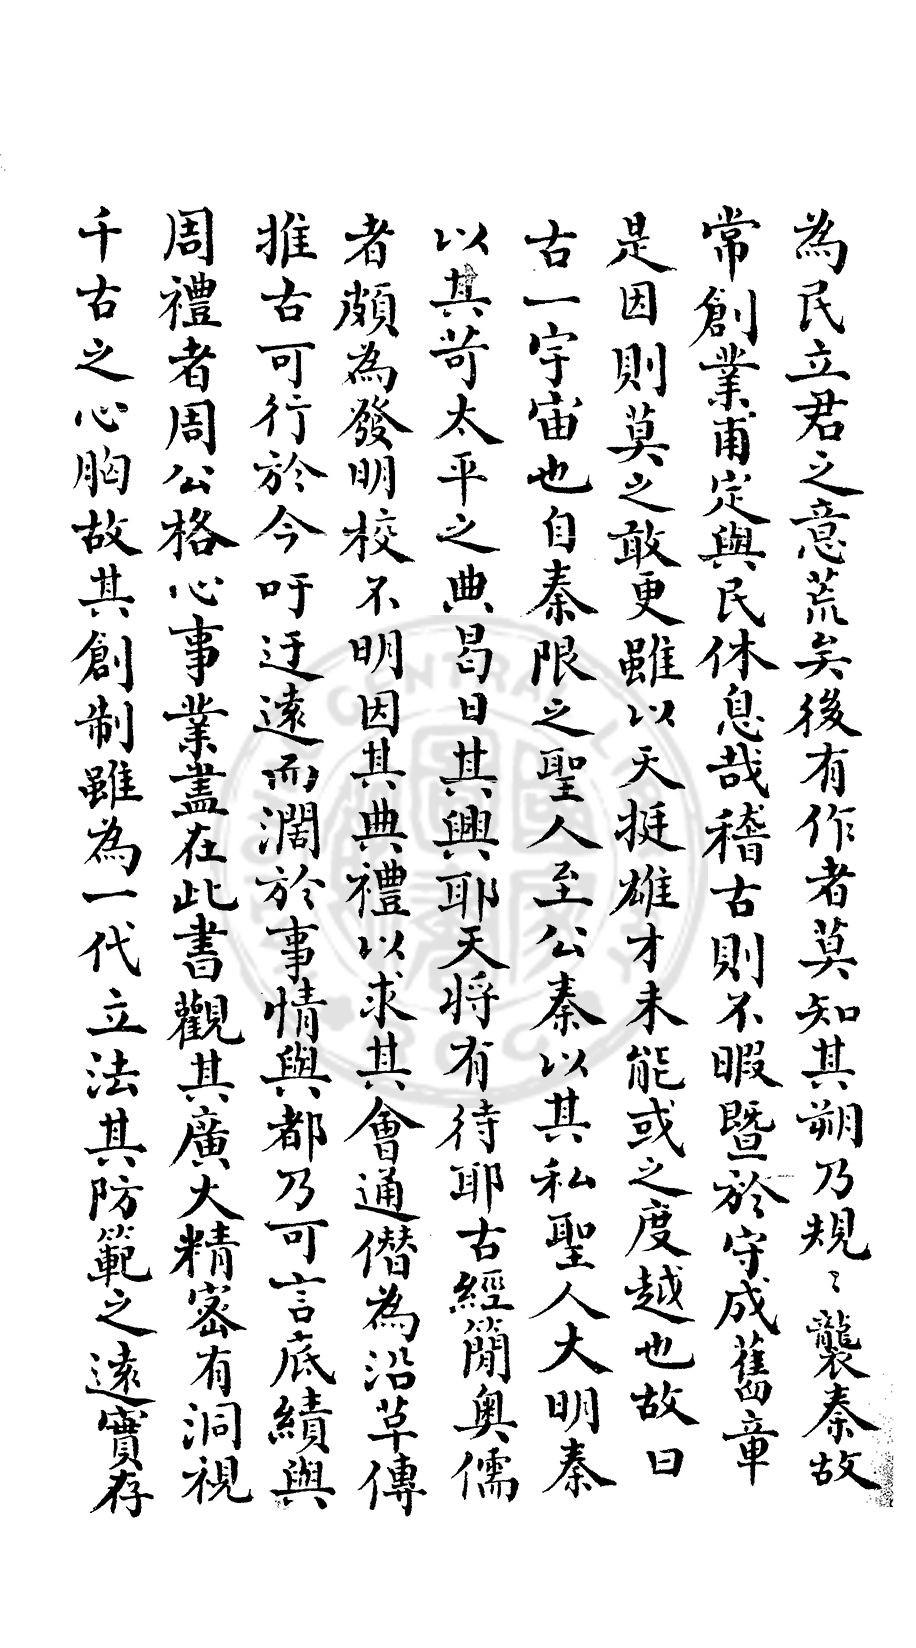 為民立君之意荒矣後有作者莫知其朔乃規〻襲秦故
常創業甫定與民休息哉稽古則不暇暨於守成舊章
是因則莫之敢更雖以天挺雄才未能或之度越也故曰
古一宇宙也自秦限之聖人至公秦以其私聖人大明秦
以其苛太平之典曷日其興耶天將有待耶古經簡奧儒
者頗為發明校不明因其典禮以求其會通僭為沿革傳
推古可行於今吁迂遠而濶於事情與都乃可言底績與
周禮者周公格心事業盡在此書觀其廣大精密有洞視
千古之心胸故其創制雖為一代立法其防範之遠實存